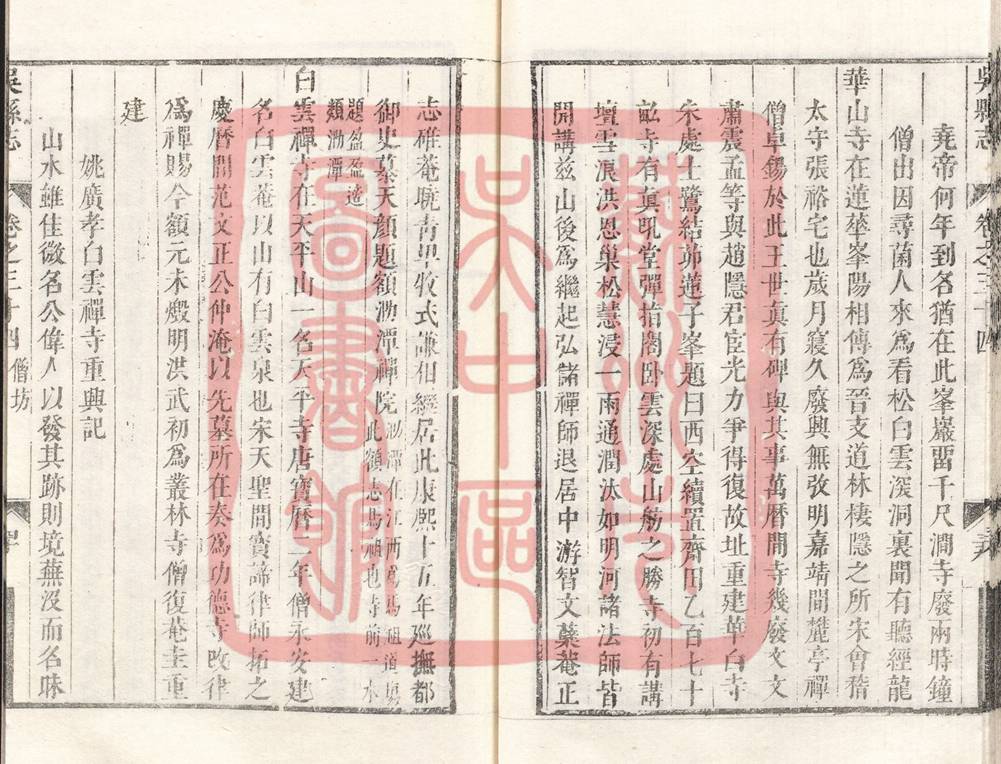 吳縣志 卷之三十四
堯帝何年到名猶在此峯巖畱千尺澗寺廢兩時鐘
僧出因尋菌人來爲看松白雲深洞裏聞有聽經龍
華山寺在蓮蕐峯陽相傳爲晉支道林棲隱之所宋會稽
太守張裕宅也歲月寖久廢興無攷明嘉靖間麓亭禪
僧卓錫於此王世貞有碑與其事萬曆間寺幾廢文文
肅震孟等與趙隱君宧光力爭得復故址重建華白寺
朱處士鷺結茆蓮子峯題曰西空續置齊田乙百七十
畝寺有真㲀堂彈指閣卧雲深處山舫之勝寺初有講
壇雪浪洪恩巢松慧浸一雨通潤汰如明河諸法師皆
開講兹山後爲繼起弘諸禪師退居中游智文蘗菴正
志碓菴曉青僧敀式謙相繼居此康熙十五年廵撫都
御史慕天顏題額泐潭禪院此額志馬祖也寺前一水
泐潭在江西爲馬祖道塲
題盤盈透
類泐潭
白雲禪寺在天平山一名天平寺唐寶曆二年僧永安建
名白雲菴以山有白雲泉也宋天聖間實諦律師拓之
慶曆間范文正公仲淹以先墓所在奏爲功德寺改律
爲禪賜今額元末燬明洪武初爲叢林寺僧復菴圭重
建
姚廣孝白雲禪寺重興記
山水雖佳微名公偉人以發其跡則境蕪没而名昧
吳縣志 卷之三十四 僧坊
吳中區
圖書館